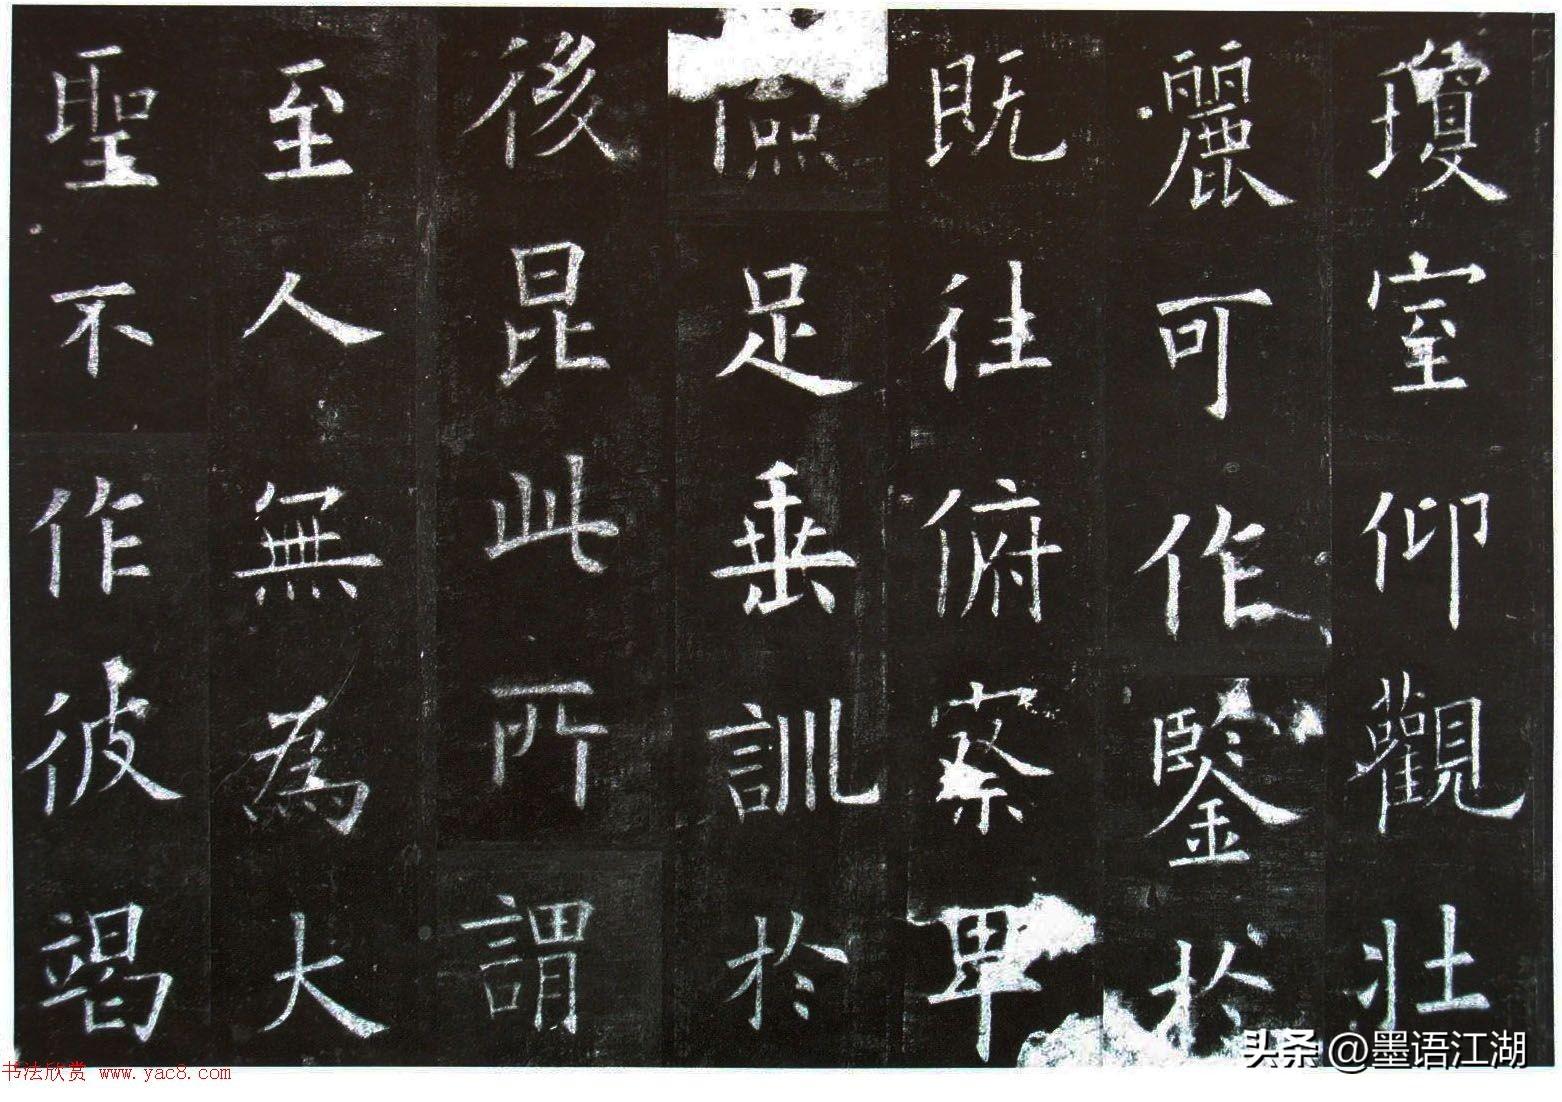 瓊室仰觀壯
麗可作鑒於
既往俯察卑
儉足垂訓於
後昆此所謂
至人無為大
聖不作彼竭
头条 @墨语江湖
书法欣赏 www.yac8.com